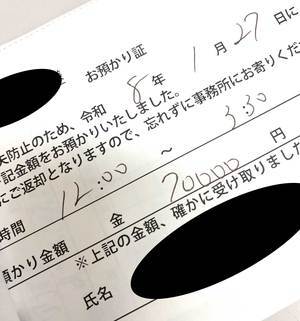 お預かり証
失防止のため、令和 8 年 1 月 27 日に
記金額をお預かりいたしました。
にご返却となりますので、忘れずに事務所にお寄りくだ
時間 12:00 ～ 3:30
預かり金額 金 70000 円
※上記の金額、確かに受け取りました
氏名